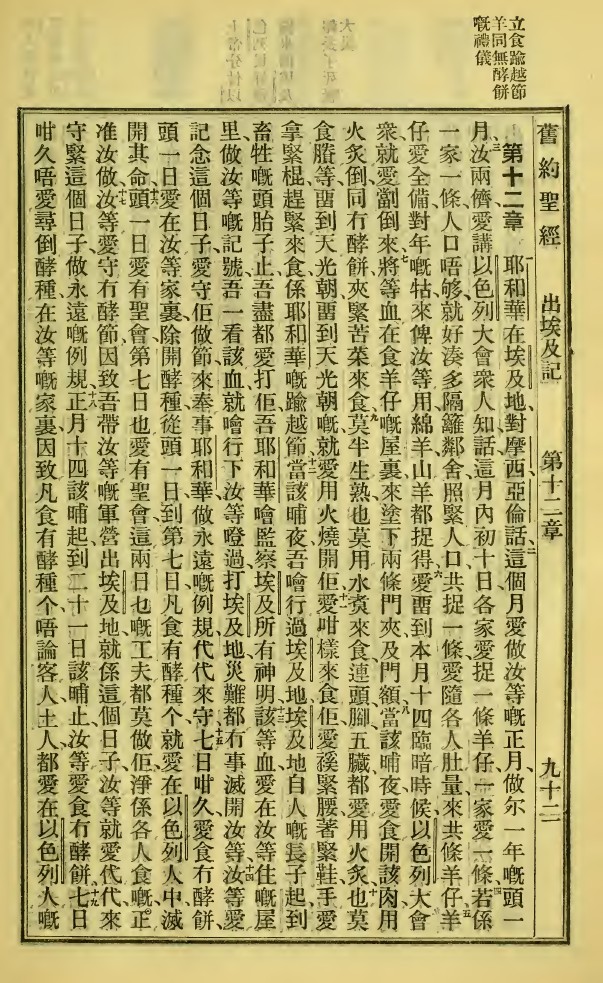 立食踰越節
羊同無酵餅
嘅禮儀
舊約聖經 出埃及記 第十二章 九十二
第十二章 耶和華在埃及地、對摩西亞倫話、二這個月愛做汝等嘅正月、做尔一年嘅頭一
月、三汝兩儕愛講以色列大會衆人知、話這月內初十日各家愛捉一條羊仔、一家愛一條、四若係
一家一條人口唔够、就好湊多隔籬鄰舍、照緊人口共捉一條、愛隨各人肚量來共條羊仔、五羊
仔愛全備對年嘅牯、來俾汝等用、綿羊山羊都捉得、六愛畱到本月十四臨暗時候、以色列大會
衆就愛劏倒來、七將等血在食羊仔嘅屋裏來塗下兩條門夾及門額、八當該晡夜愛食開該肉、用
火炙倒、同冇酵餅夾緊苦菜來食、九莫半生熟、也莫用水煑來食、連頭腳五臟都愛用火炙、十也莫
食賸等畱到天光朝、畱到天光朝嘅、就愛用火燒開佢、十一愛咁樣來食佢、愛㧡緊腰、著緊鞋、手愛
拿緊棍、趕緊來食、係耶和華嘅踰越節、十二當該晡夜吾噲行過埃及地、埃及地自人嘅長子起、到
畜牲嘅頭胎子止、吾盡都愛打佢、吾耶和華噲監察埃及所有神明、十三該等血愛在汝等住嘅屋
里、做汝等嘅記號、吾一看該血、就噲行下汝等、噔過打埃及地、災難都冇事滅開汝等、十四汝等愛
記念這個日子、愛守佢做節、來奉事耶和華、做永遠嘅例規、代代來守、十五七日咁久愛食冇酵餅、
頭一日愛在汝等家裏除開酵種、從頭一日到第七日、凡食有酵種个、就愛在以色列人中滅
開其命、十六頭一日愛有聖會、第七日也愛有聖會、這兩日乜嘅工夫都莫做、佢淨係各人食嘅正
准汝做、十七汝等愛守冇酵節、因致吾帶汝等嘅軍營出埃及地、就係這個日子、汝等就愛代代來
守緊這個日子、做永遠嘅例規、十八正月十四該晡起、到二十一日該晡止、汝等愛食冇酵餅、十九七日
咁久唔愛尋倒酵種在汝等嘅家裏、因致凡食有酵種个、唔論客人土人、都愛在以色列人嘅